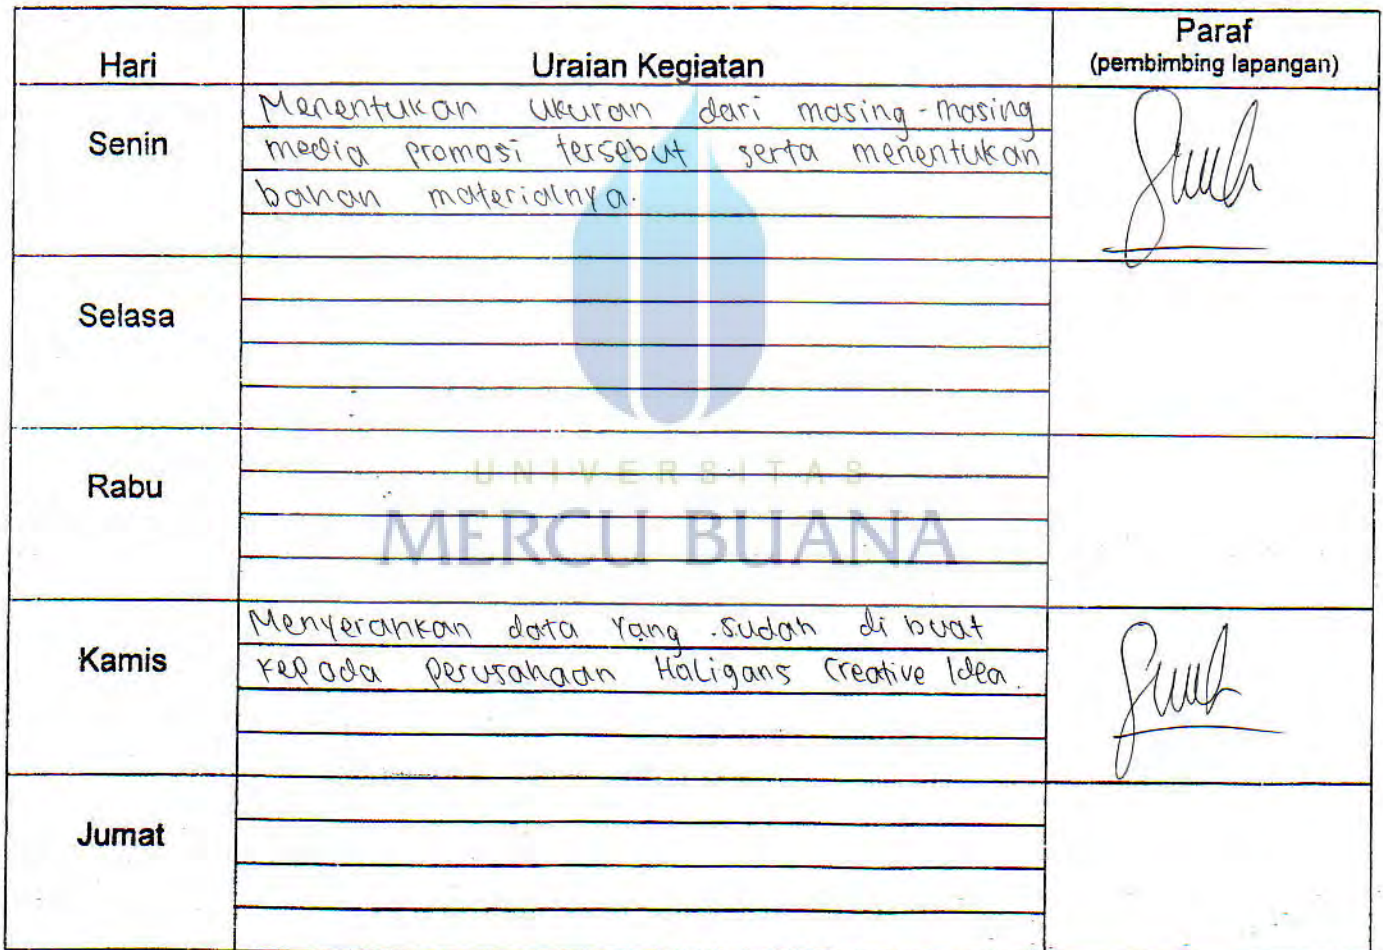 Hari Uraian Kegiatan Paraf
(pembimbing lapangan)
Senin
Menentukan ukuran dari masing-masing
media promosi tersebut serta menentukan
bahan materialnya.
Selasa
Rabu
UNIVERSITAS
MERCU BUANA
Kamis
Menyerahkan data yang sudah di buat
kepada perusahaan Haligans Creative Idea.
Jumat